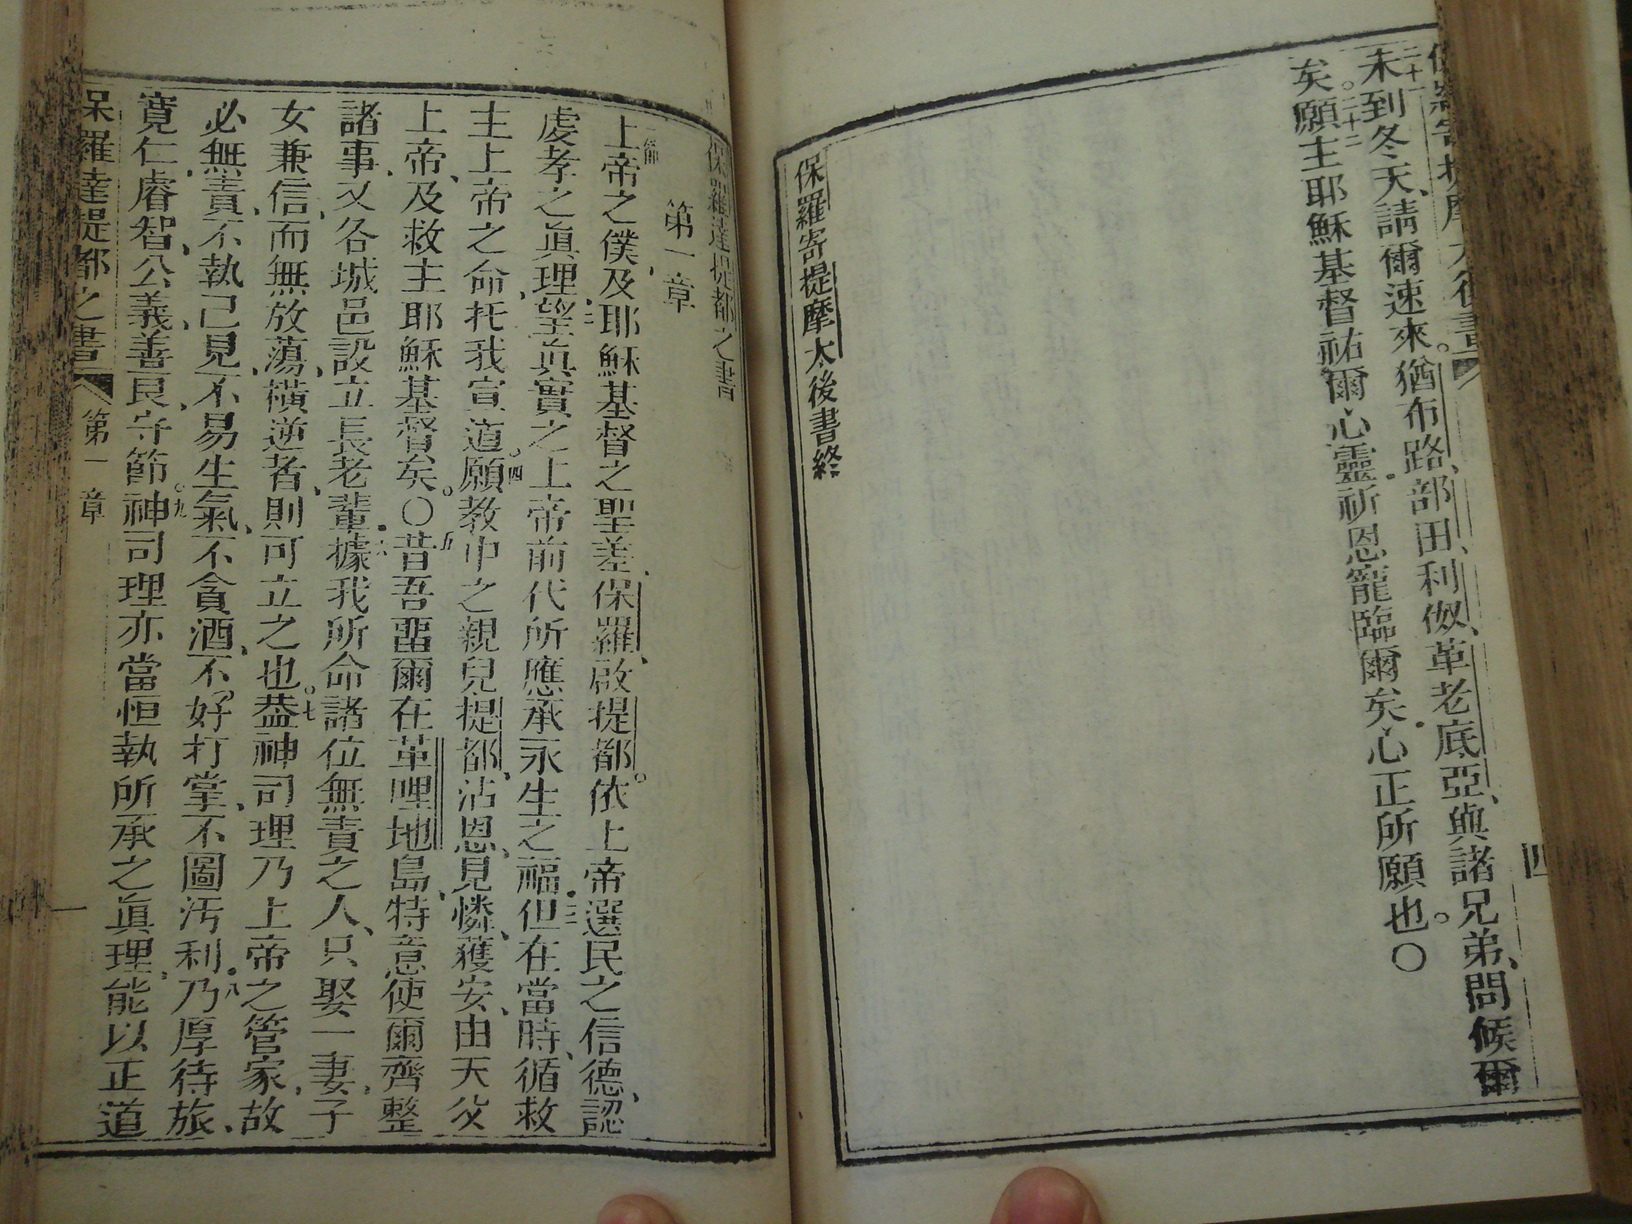 未到冬天、請爾速來。猶布路、部田、利倣、革老底亞、與諸兄弟、問候爾
矣。二十二願主耶穌基督祐爾心靈、祈恩寵臨爾矣。心正所願也。〇
四
保羅寄提摩太後書終
保羅達提都之書
第一章
上帝之僕、及耶穌基督之聖差、保羅、啟提都。依上帝選民之信德、認
虔孝之眞理、二望眞實之上帝前代所應承永生之福。三但在當時、循救
主上帝之命、托我宣道。四願教中之親兒提都、沾恩、見憐、獲安、由天父
上帝、及救主耶穌基督矣。〇五昔吾畱爾在革哩地島、特意使爾齊整
諸事、又各城邑設立長老輩。六據我所命諸位無責之人、只娶一妻、子
女兼信、而無放蕩、橫逆者、則可立之也。七葢神司理乃上帝之管家、故
必無責、不執己見、不易生氣、不貪酒、不好打掌、不圖汚利。八乃厚待旅、
寬仁、睿智、公義、善良、守節。九神司理亦當恒執所承之眞理、能以正道
保羅達提都之書
第一章